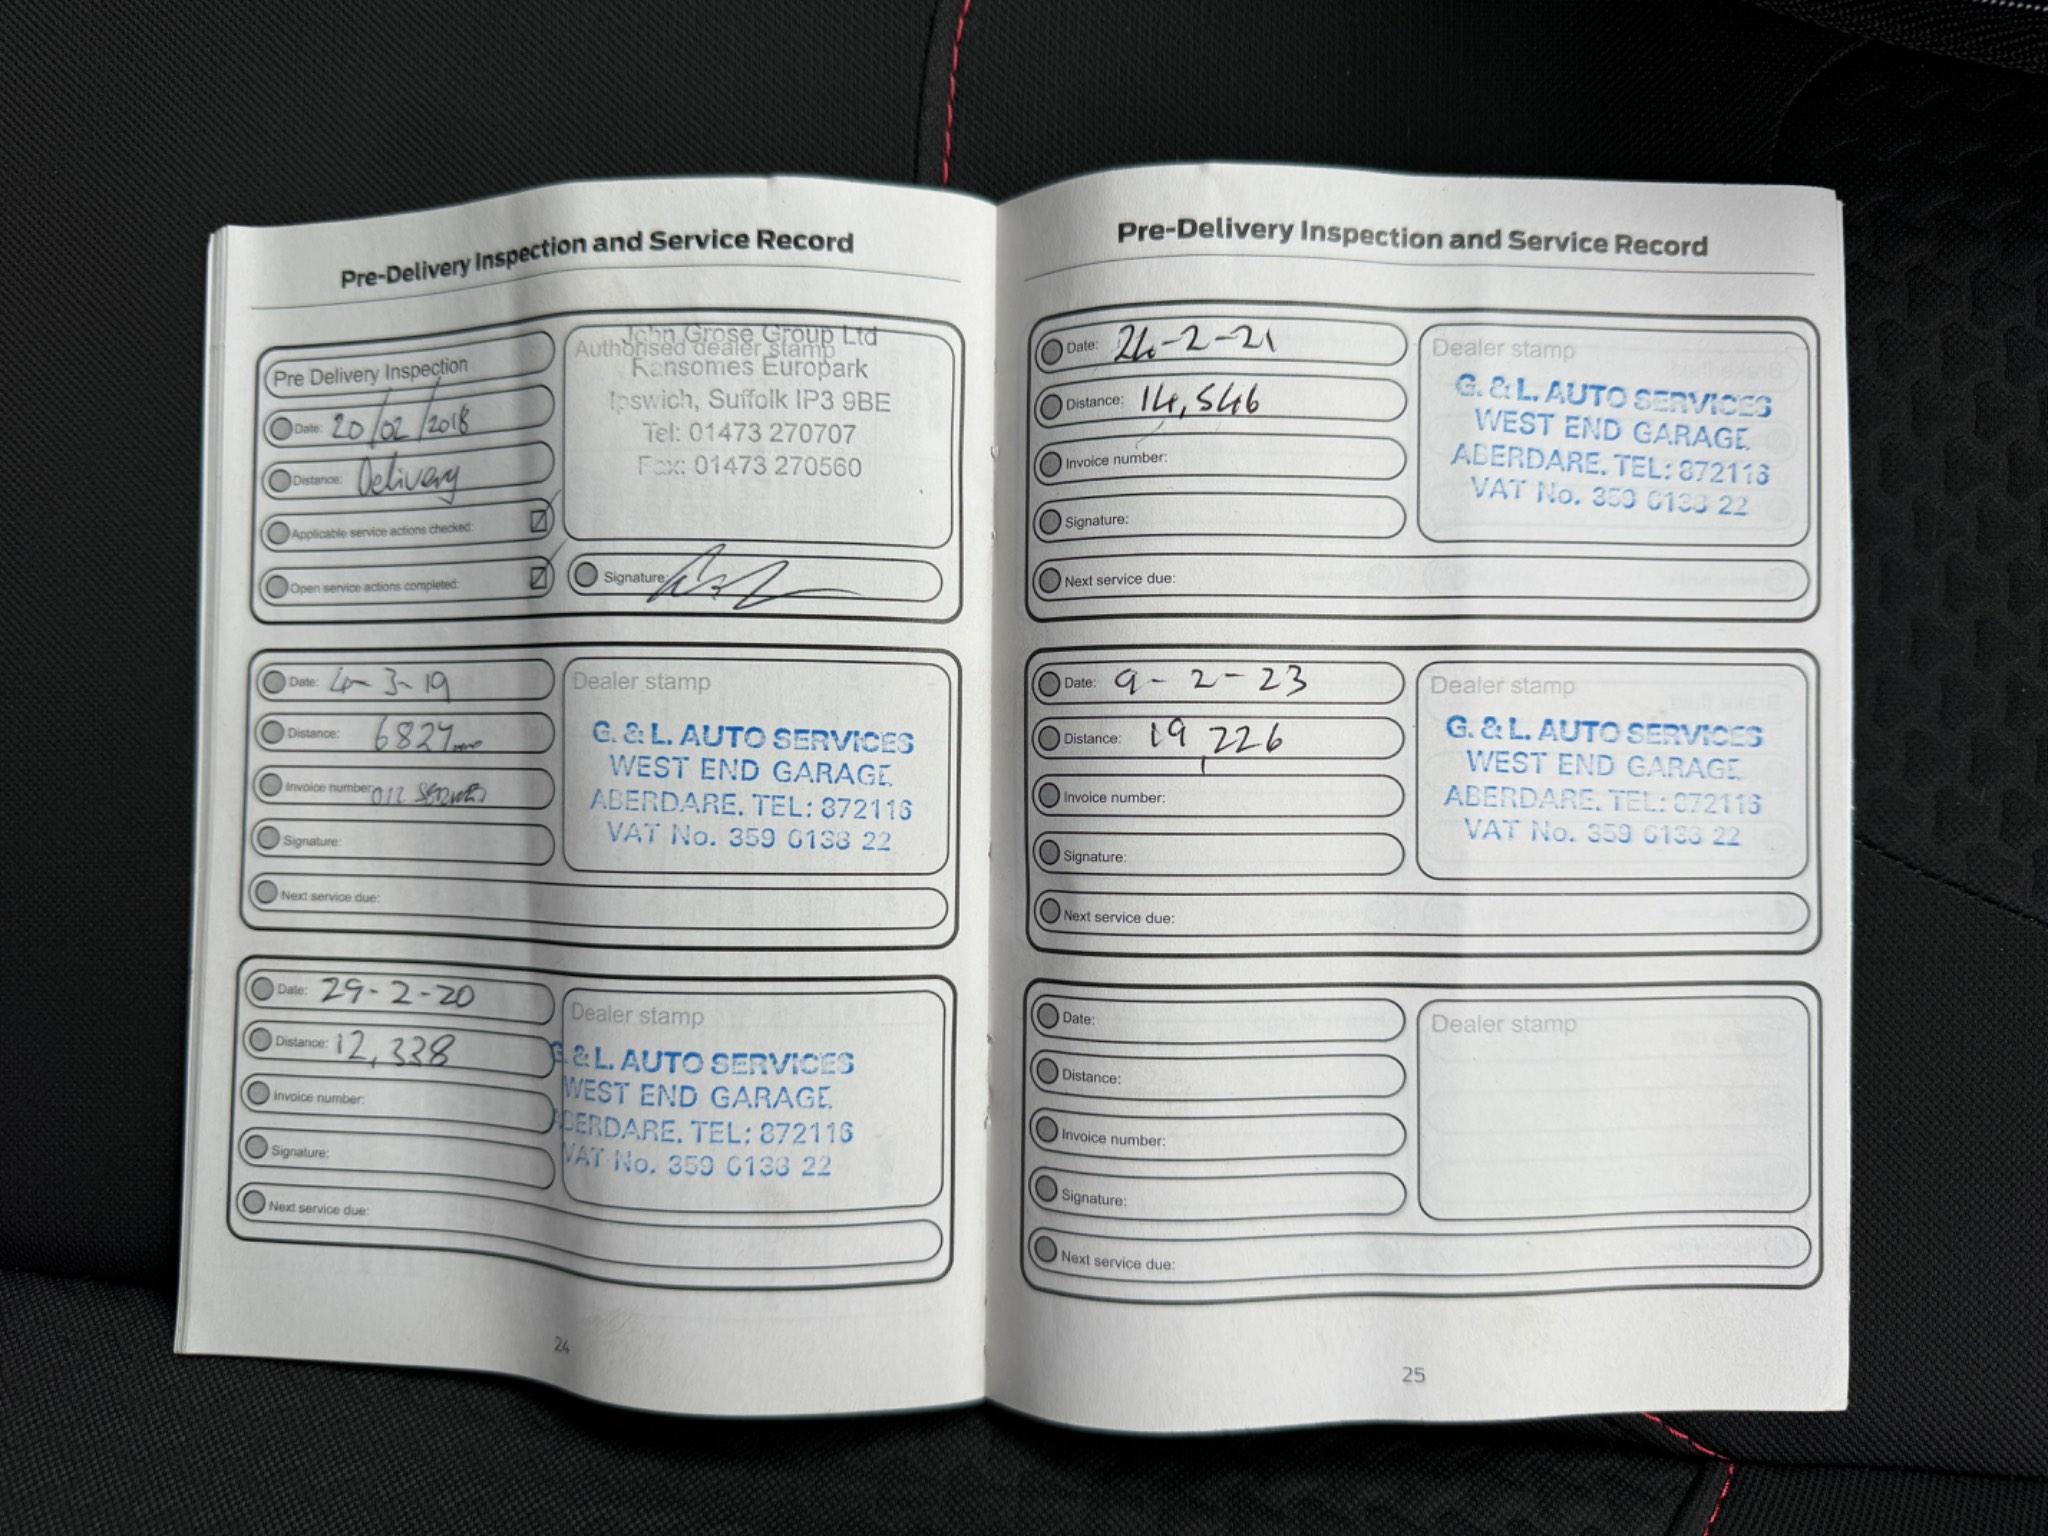 Pre-Delivery Inspection and Service Record
Pre Delivery Inspection
Date: 20/02/2018
Distance: Delivery
Applicable service actions checked:
Open service actions completed:
Authorised dealer stamp
John Grose Group Ltd
Ransomes Europark
Ipswich, Suffolk IP3 9BE
Tel: 01473 270707
Fax: 01473 270560
Signature:
Date: 4-3-19
Distance: 6827
Invoice number: OIL SERVICE
Signature:
Next service due:
Dealer stamp
G. & L. AUTO SERVICES
WEST END GARAGE
ABERDARE. TEL: 872116
VAT No. 359 0138 22
Date: 29-2-20
Distance: 12,338
Invoice number:
Signature:
Next service due:
Dealer stamp
G. & L. AUTO SERVICES
WEST END GARAGE
ABERDARE. TEL: 872116
VAT No. 359 0138 22
24
Pre-Delivery Inspection and Service Record
Date: 24-2-21
Distance: 14,546
Invoice number:
Signature:
Next service due:
Dealer stamp
G. & L. AUTO SERVICES
WEST END GARAGE
ABERDARE. TEL: 872116
VAT No. 359 0138 22
Date: 9-2-23
Distance: 19,226
Invoice number:
Signature:
Next service due:
Dealer stamp
G. & L. AUTO SERVICES
WEST END GARAGE
ABERDARE. TEL: 872116
VAT No. 359 0138 22
Date:
Distance:
Invoice number:
Signature:
Next service due:
Dealer stamp
25